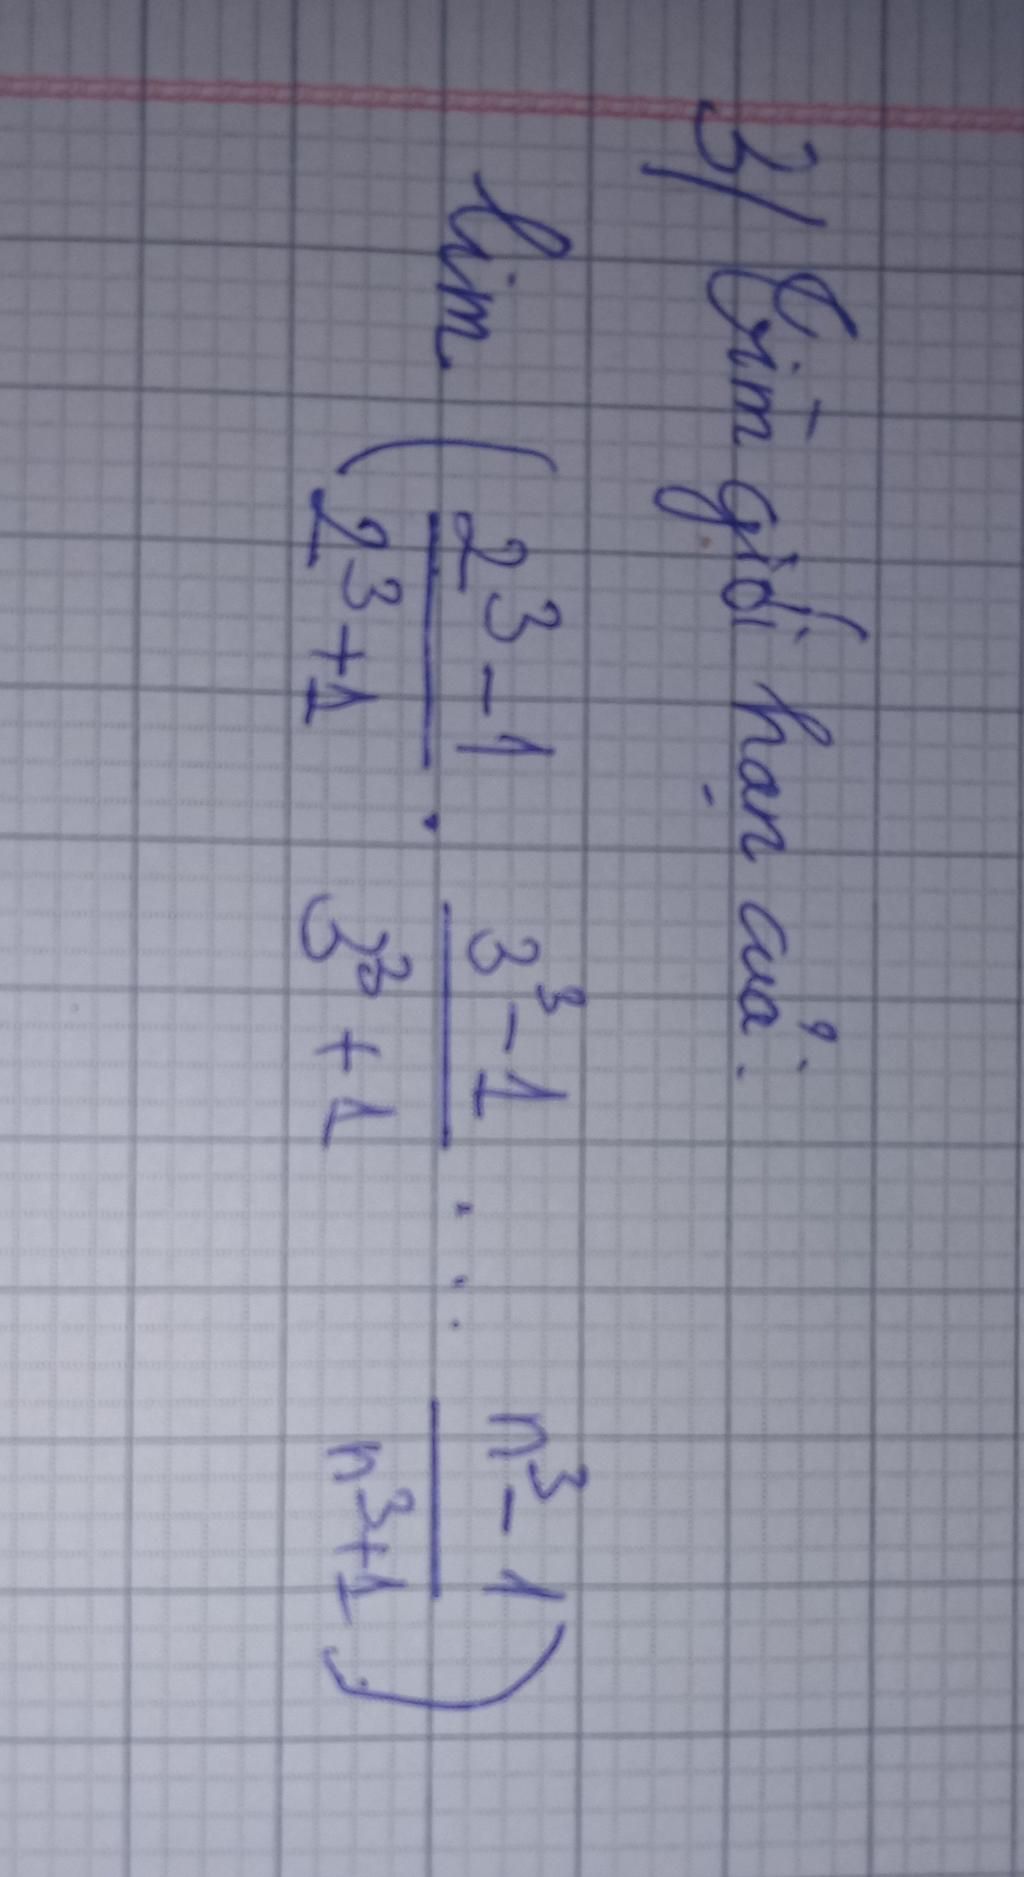 3/ Tìm giới hạn của:
lim ( (2^3 - 1)/(2^3 + 1) . (3^3 - 1)/(3^3 + 1) ... (n^3 - 1)/(n^3 + 1) )